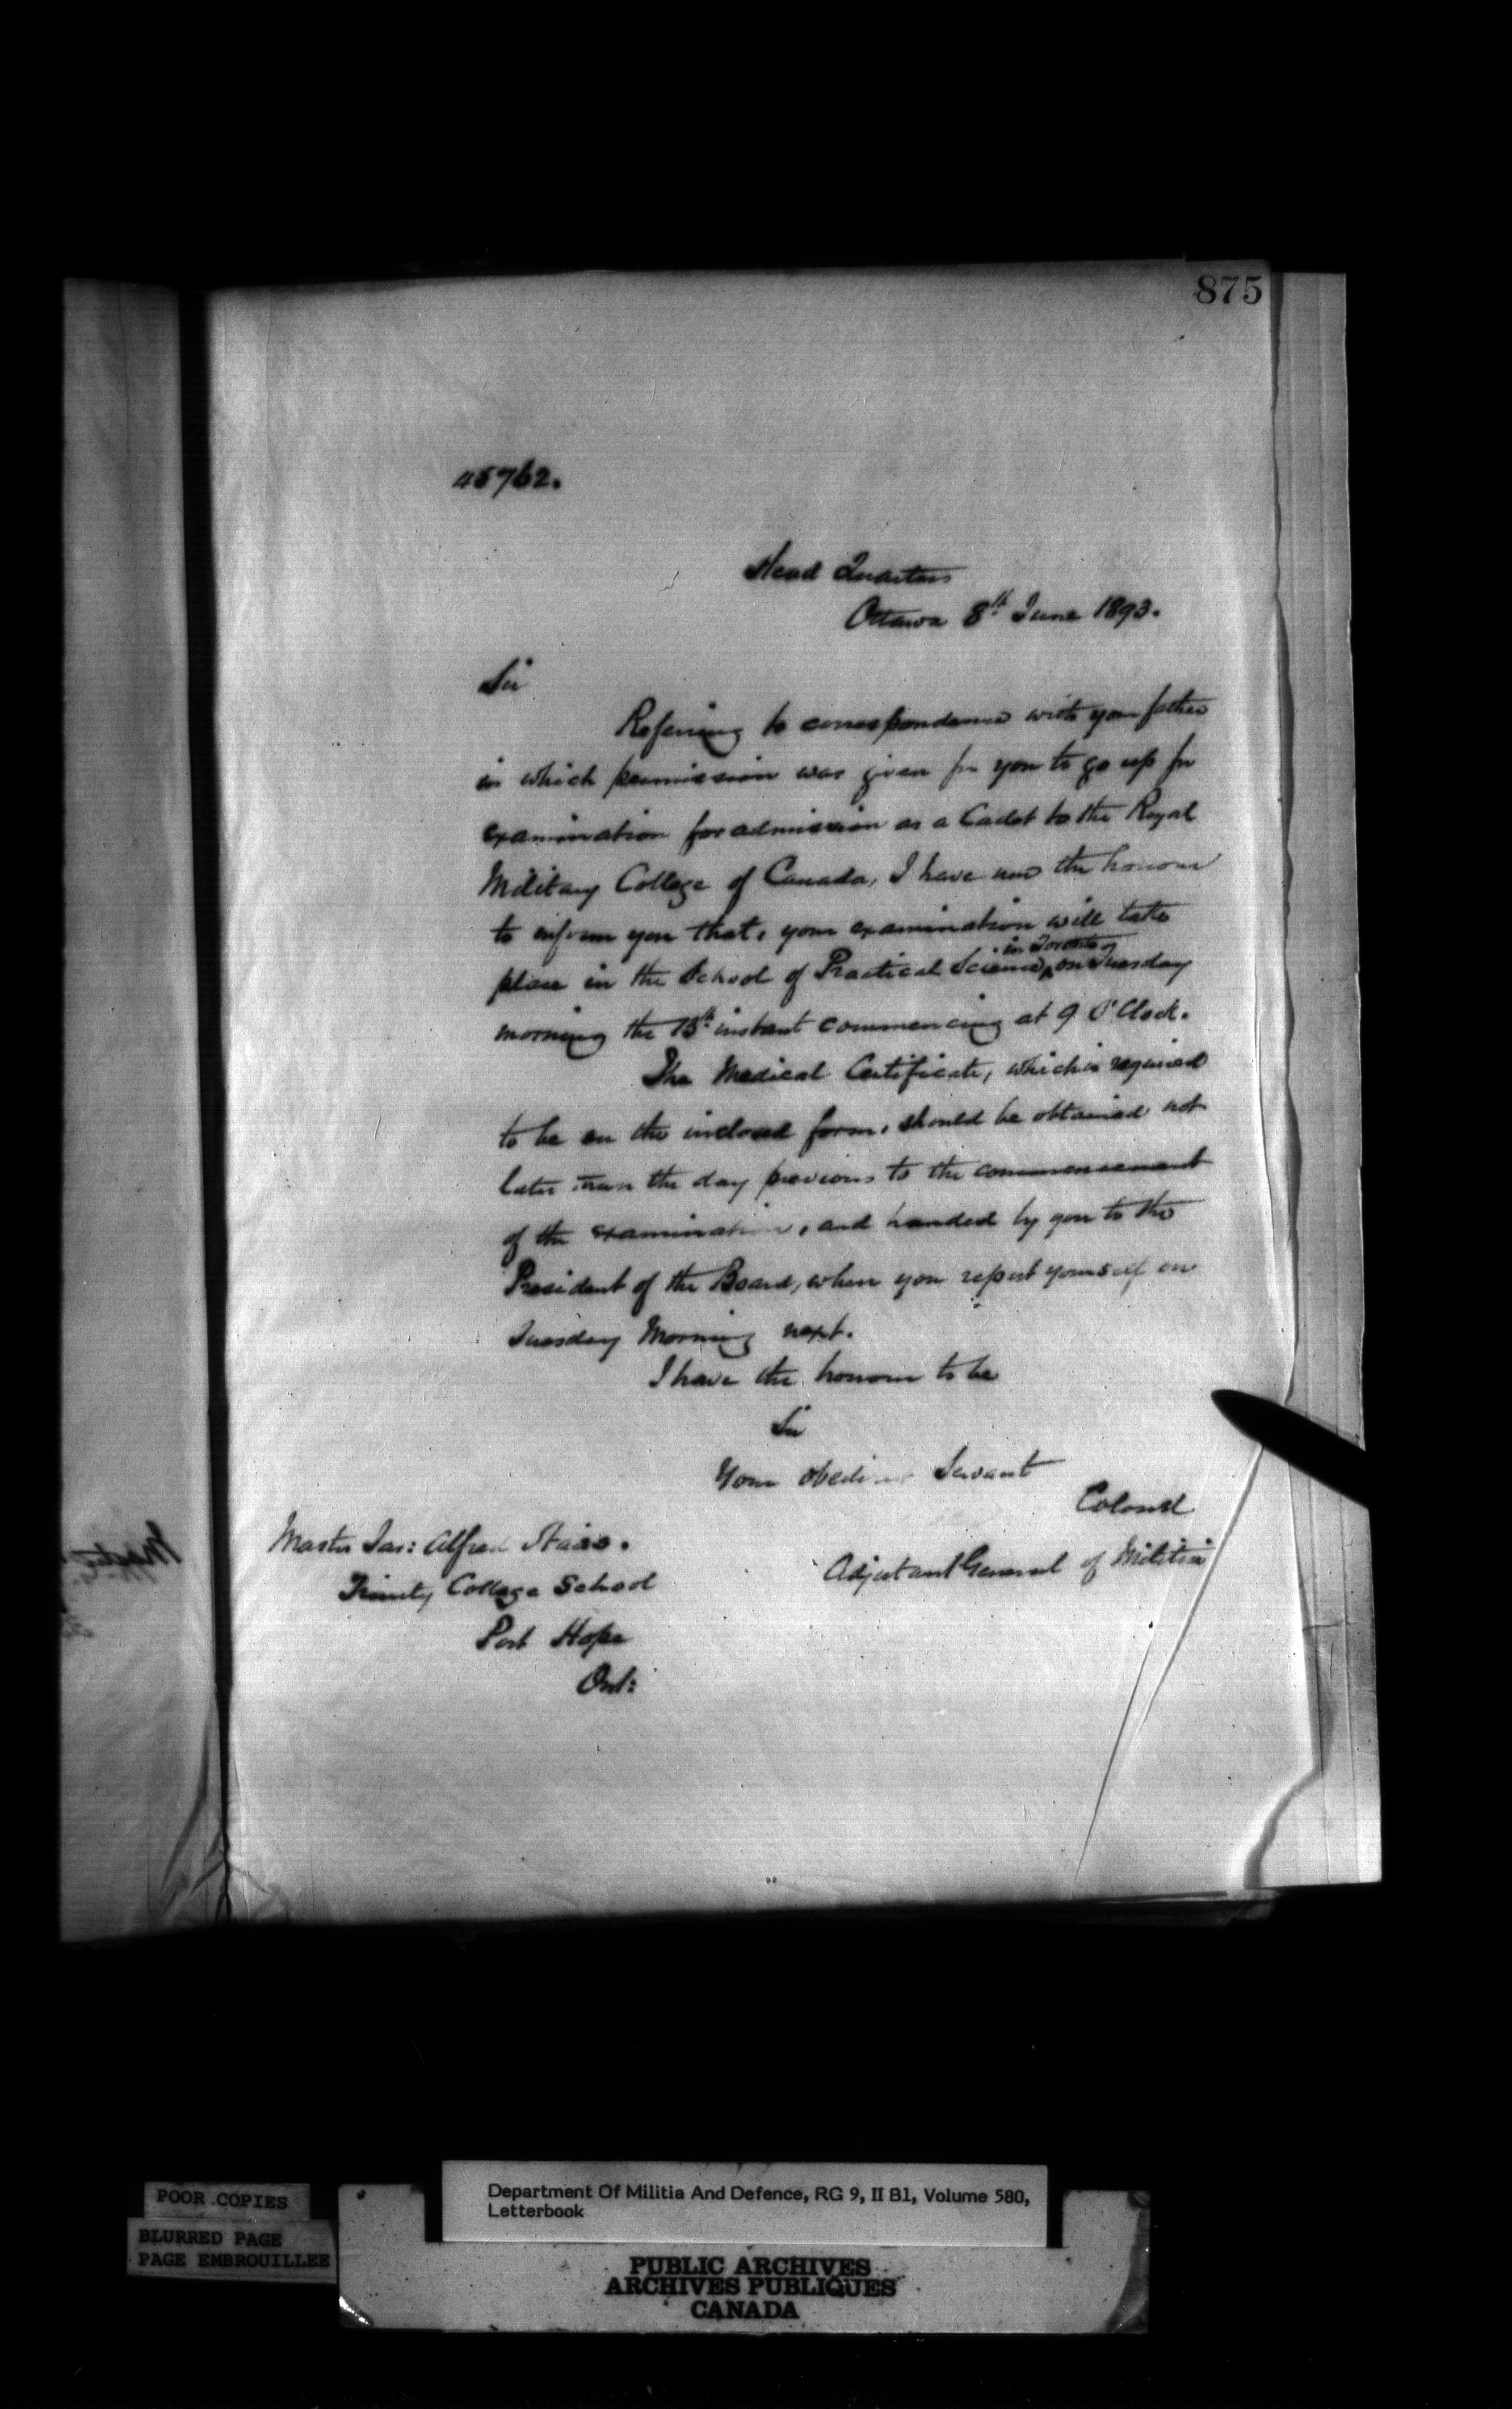 875
45762.
Head Quarters
Ottawa 8th June 1893.
Sir
Referring to correspondence with your father
in which permission was given for you to go up for
examination for admission as a Cadet to the Royal
Military College of Canada, I have now the honour
to inform you that, your examination will take
in Toronto
place in the School of Practical Science, on Tuesday
morning the 13th instant commencing at 9 O'Clock.
The Medical Certificate, which is required
to be on the inclosed form, should be obtained not
later than the day previous to the commencement
of the examination, and handed by you to the
President of the Board, when you report yourself on
Tuesday Morning next.
I have the honour to be
Sir
Your obedient Servant
Colonel
Adjutant General of Militia
Master Jas: Alfred
Trinity College School
Port Hope
Ont:
POOR COPIES
BLURRED PAGE
PAGE EMBROUILLEE
Department Of Militia And Defence, RG 9, II B1, Volume 580,
Letterbook
PUBLIC ARCHIVES
ARCHIVES PUBLIQUES
CANADA